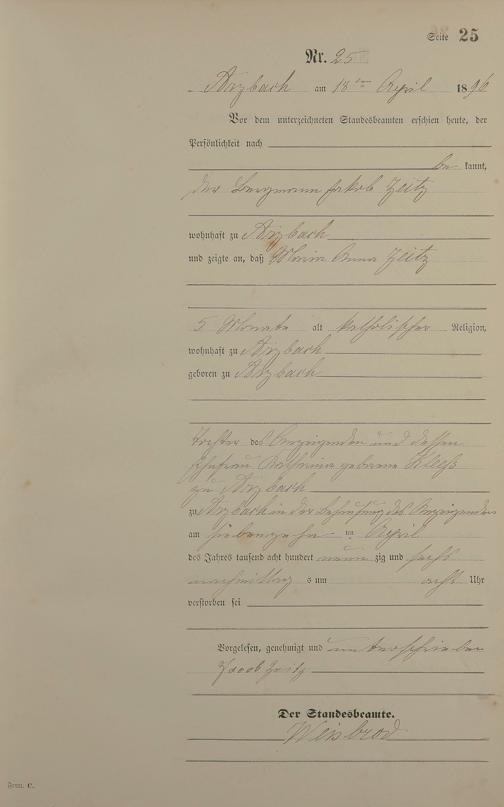 Seite 25
Nr. 25
Arzbach am 18ten April 1896
Vor dem unterzeichneten Standesbeamten erschien heute, der
Persönlichkeit nach
be kannt,
der Bergmann Jakob Zeitz
wohnhaft zu Arzbach
und zeigte an, daß Maria Anna Zeitz
5 Monate alt katholischer Religion,
wohnhaft zu Arzbach
geboren zu Arzbach
Tochter des Anzeigenden und dessen
Ehefrau Katharina geborene
zu Arzbach
zu Arzbach in der Behausung des Anzeigenden
am siebenzehn ten April
des Jahres tausend acht hundert neun zig und sechs
nachmittag s um acht Uhr
verstorben sei
Vorgelesen, genehmigt und unterschrieben
Jacob Zeitz
Der Standesbeamte.
Weisbrod
Form. C.